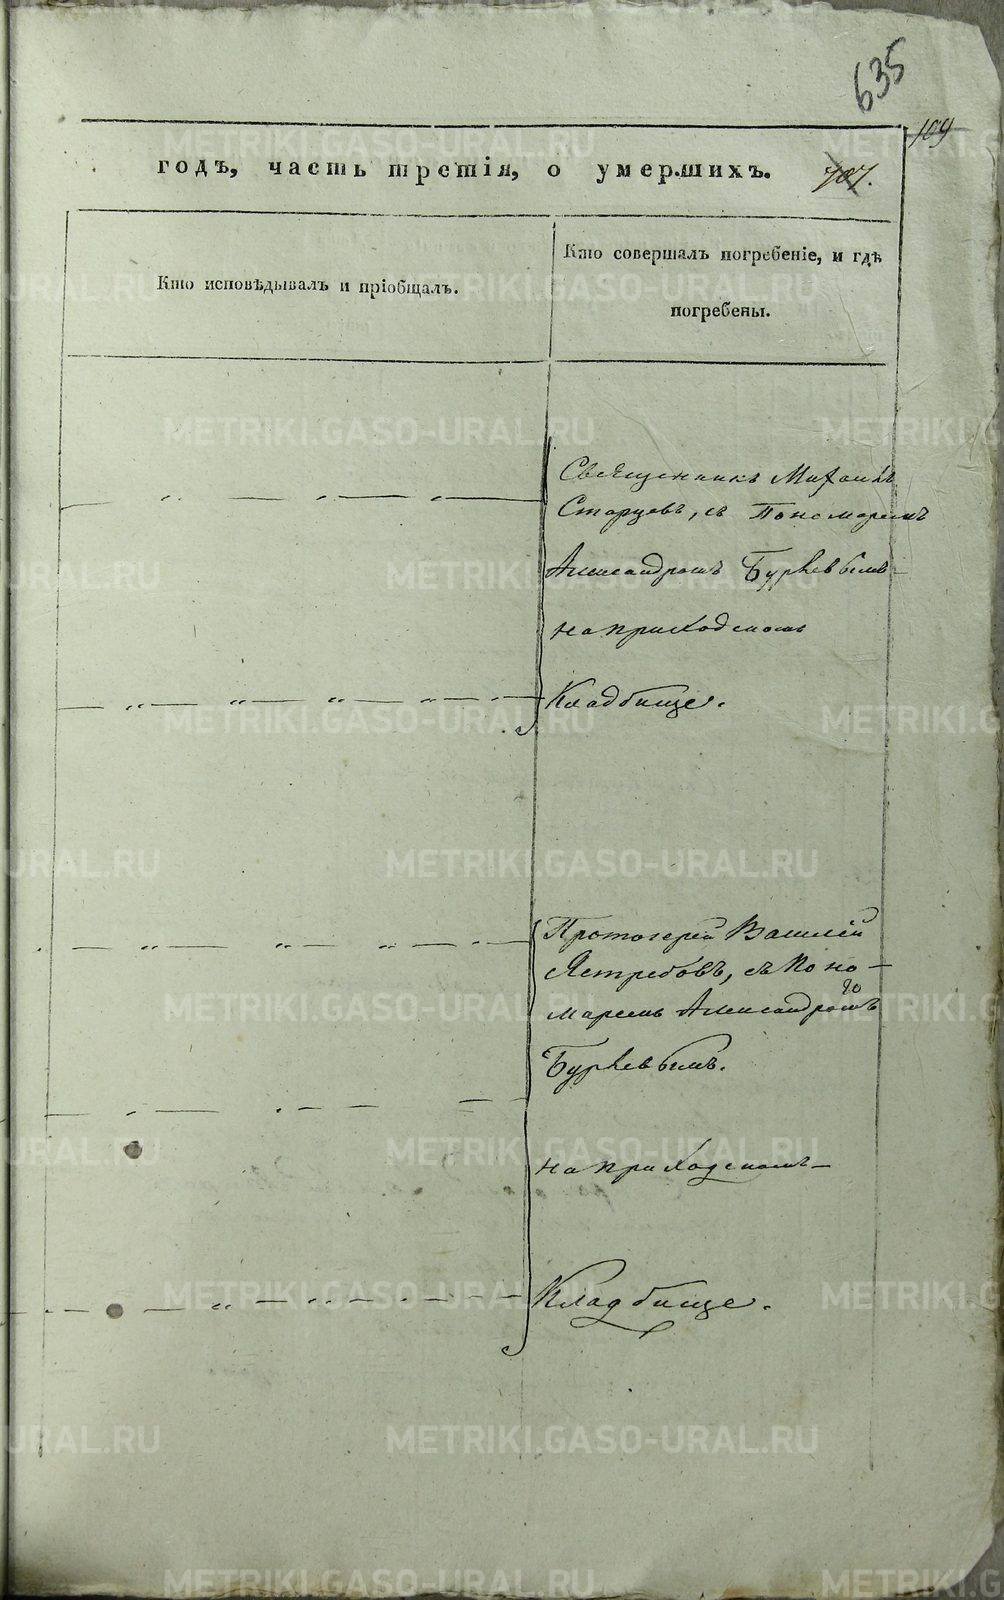 635
109
годъ, часть третія, о умершихъ. 107.
Кто исповѣдывалъ и пріобщалъ.
Кто совершалъ погребеніе, и гдѣ
погребены.
Священникъ Михаилъ
Старцевъ, съ Пономаремъ
Александромъ Буркевымъ
на приходскомъ
Кладбище.
Протоіерей Василей
Ястребовъ, съ Поно-
маремъ Александромъ
Буркевымъ.
на приходскомъ
Кладбище.
METRIKI.GASO-URAL.RU